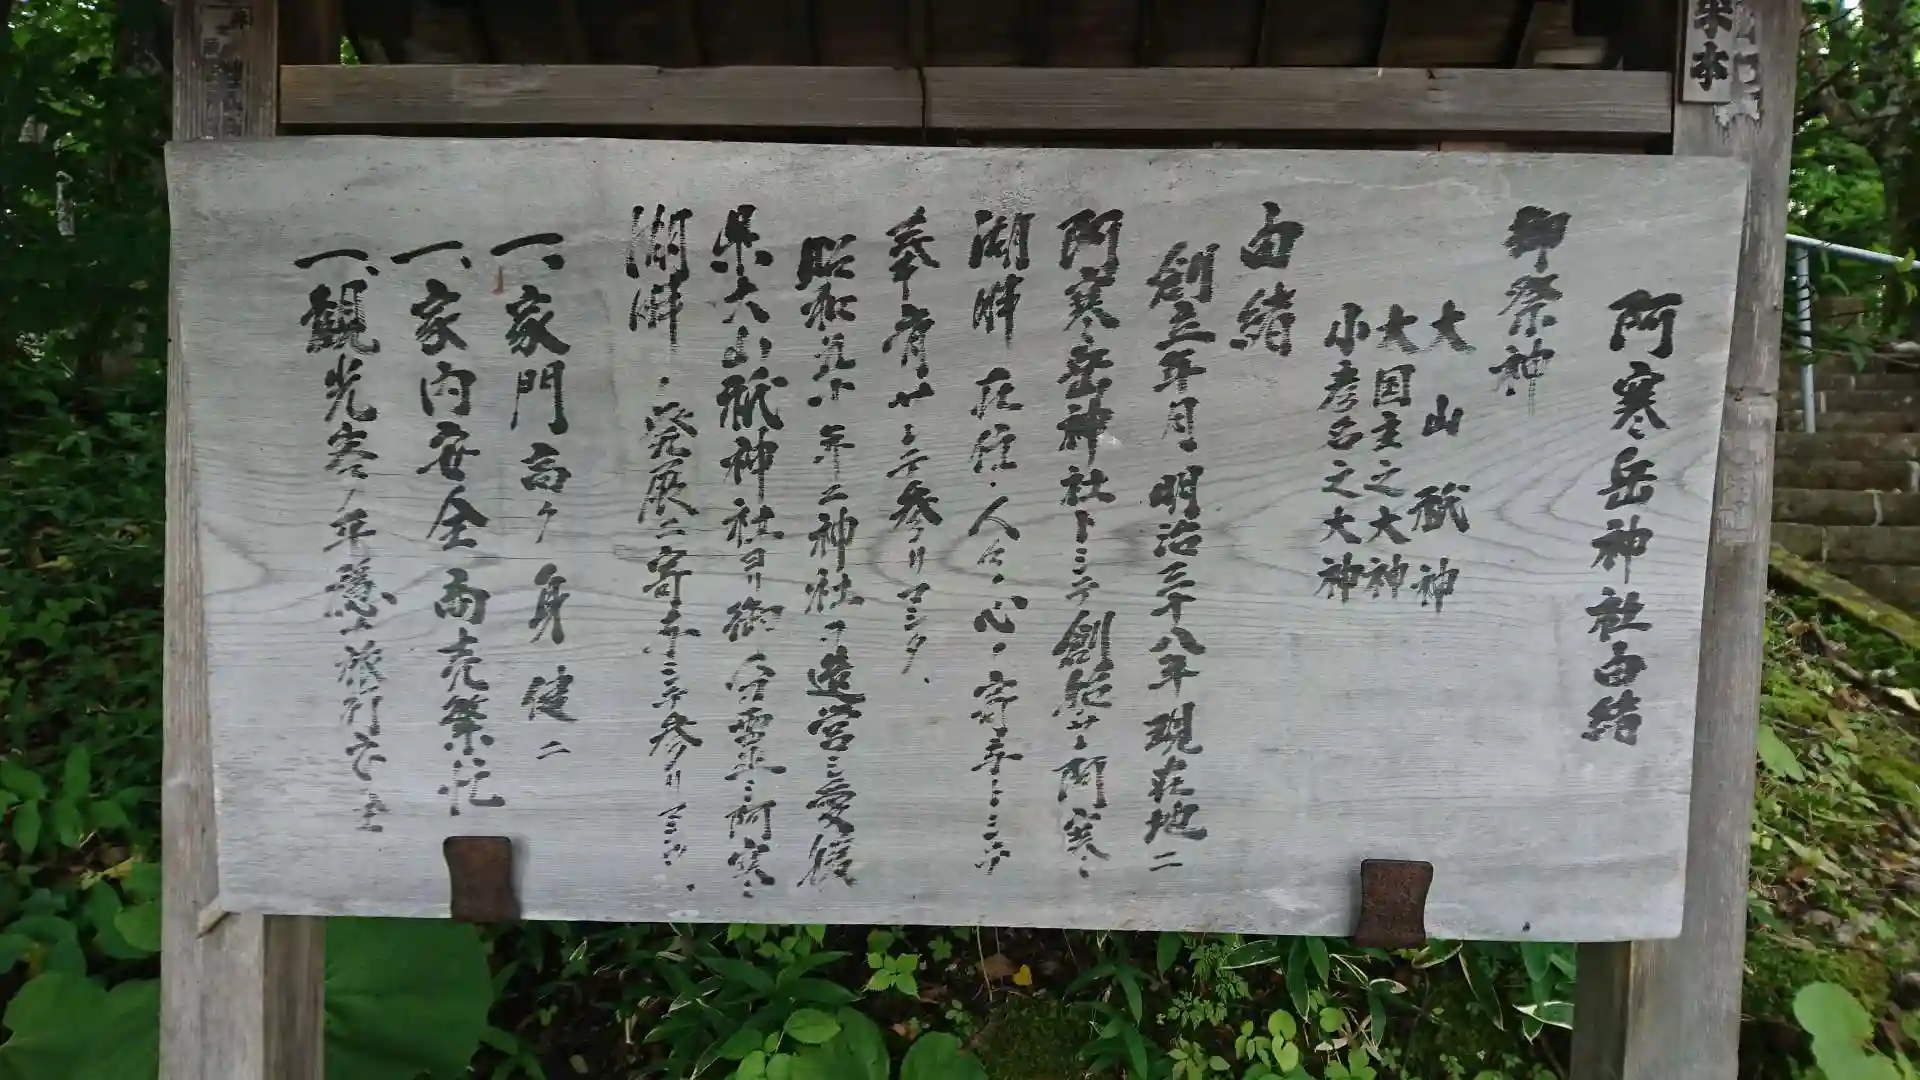 阿寒岳神社由緒
御祭神
大山祇神
大国主之大神
小彦名之大神
由緒
創立年月明治三十八年現在地ニ
阿寒岳神社トシテ創祀サレ阿寒
湖畔在住ノ人々ノ心ノ寄辺トシテ
奉斉サレテ参リマシタ、
昭和九十年ニ神社ヲ造営シ愛媛
県大山祇神社ヨリ御分霊ヲ阿寒
湖畔ノ発展ニ寄与シテ参リマシタ、
一、家門高ク身健ニ
一、家内安全商売繁忙
一、観光客ノ平穏旅行安全